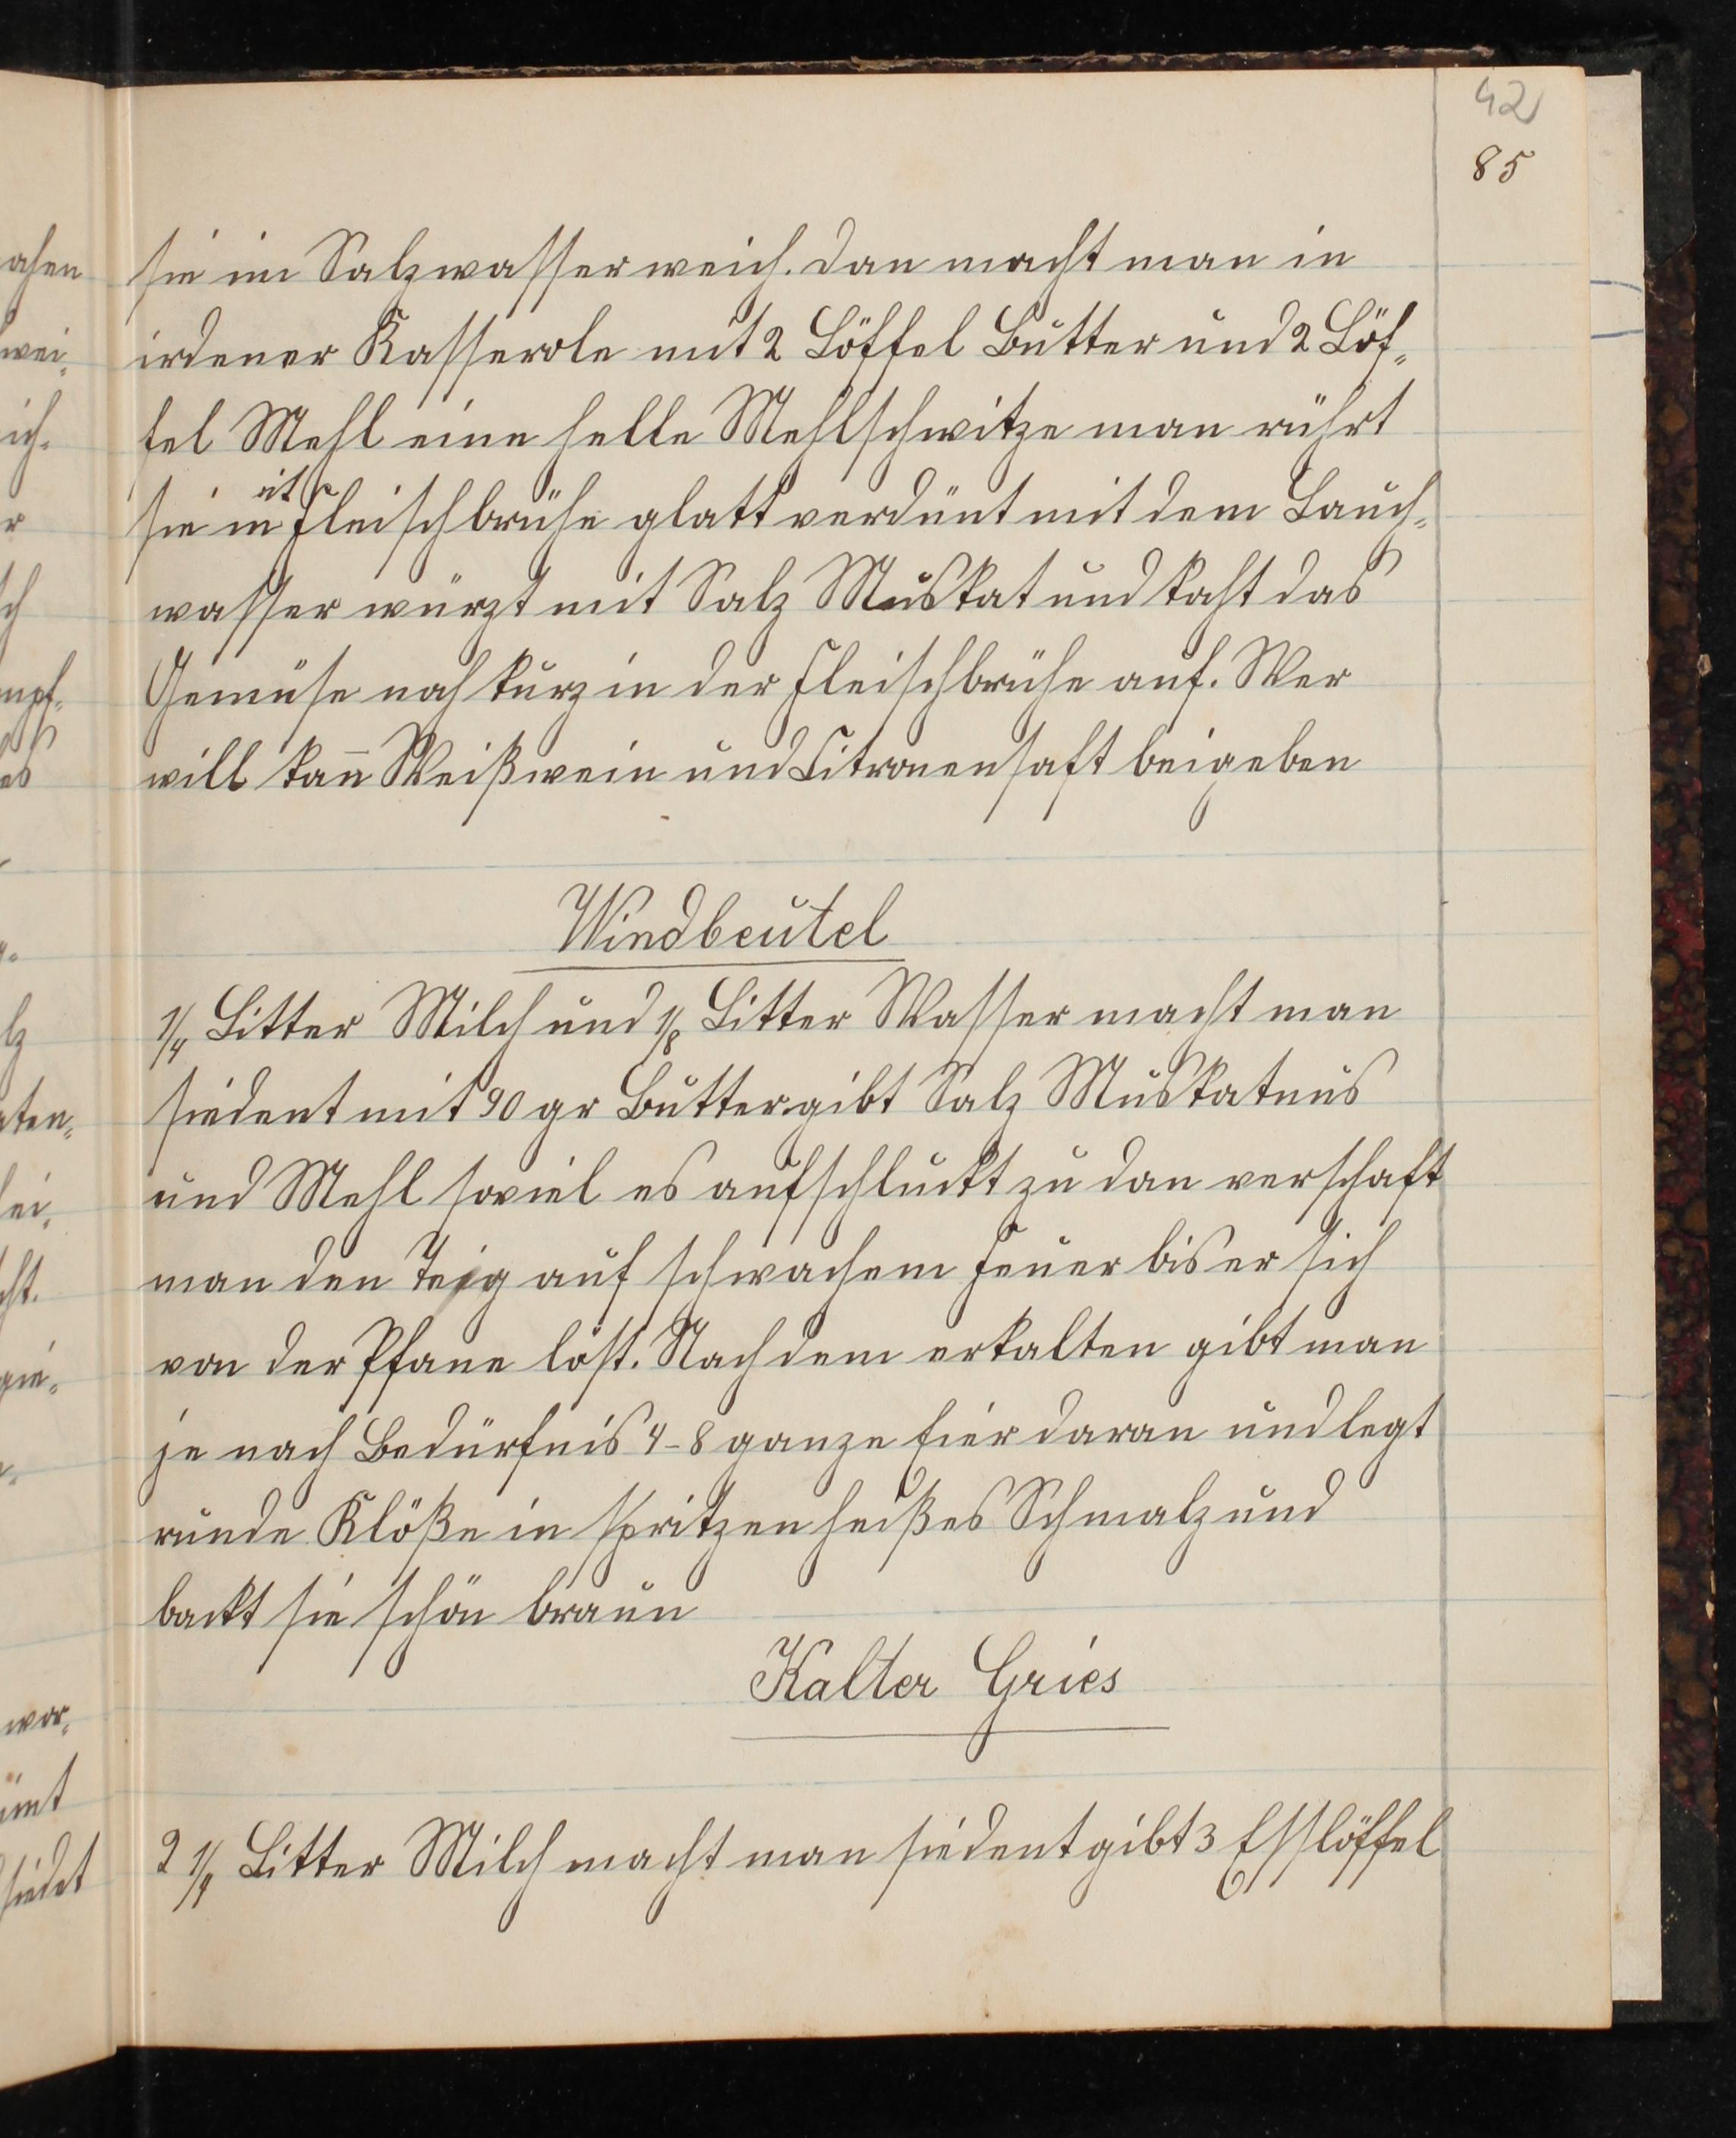 42
85
sie im Salzwasser weich. dan macht man in
irdener Kasserole mit 2 Löffel Butter und 2 Löf„
fel Mehl eine helle Mehlschwitze man rührt
sie mit Fleischbrühe glatt verdünt mit dem Lauch„
wasser würzt mit Salz Muskat und kocht das
Gemüse noch kurz in der Fleischbrühe auf. Wer
will kan̄ Weißwein und Citronensaft beigeben
Windbeutel
1/4 Litter Milch und 1/8 Litter Wasser macht man
siedent mit 90 gr Butter gibt Salz Muskatnus
und Mehl soviel es aufschluckt zu dan verschaft
man den Teig auf schwachem Feuer bis er sich
von der Pfane löst. Nach dem erkalten gibt man
je nach Bedürfnis 4-8 ganze Eier daran und legt
runde Klöße in spritzen heißes Schmalz und
backt sie schön braun
Kalter Gries
2 1/4 Litter Milch macht man siedent gibt 3 Esslöffel